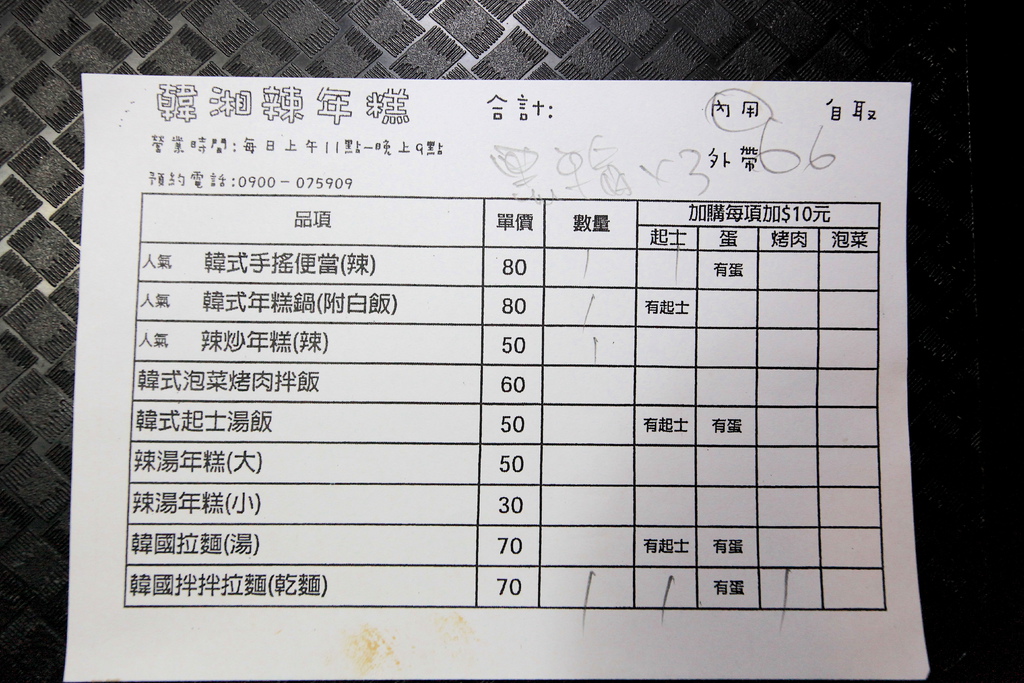 韓湘辣年糕 合計: 內用 自取
營業時間:每日上午11點-晚上9點 外帶 66
預約電話:0900-075909 x3
品項 單價 數量 加購每項加$10元
起士 蛋 烤肉 泡菜
人氣 韓式手搖便當(辣) 80 / / 有蛋
人氣 韓式年糕鍋(附白飯) 80 / 有起士
人氣 辣炒年糕(辣) 50 /
韓式泡菜烤肉拌飯 60
韓式起士湯飯 50 有起士 有蛋
辣湯年糕(大) 50
辣湯年糕(小) 30
韓國拉麵(湯) 70 有起士 有蛋
韓國拌拌拉麵(乾麵) 70 / / 有蛋 /